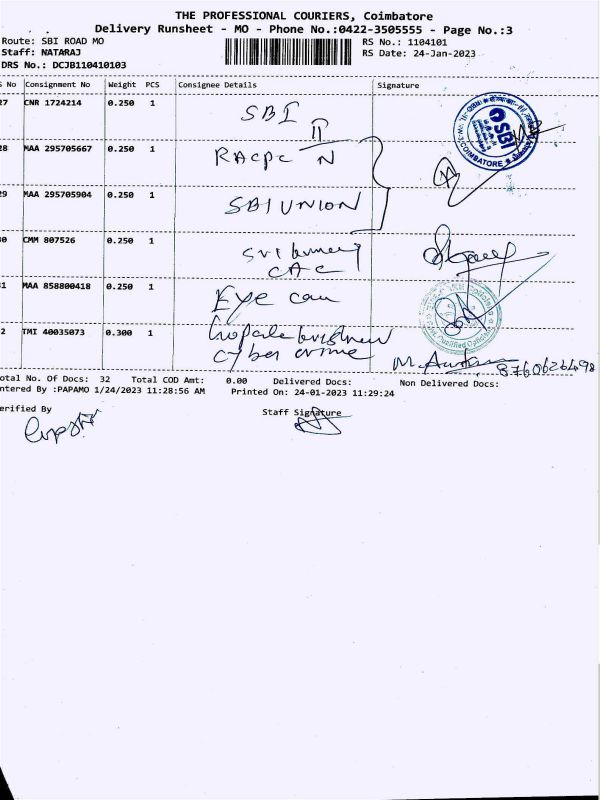 THE PROFESSIONAL COURIERS, Coimbatore
Delivery Runsheet - MO - Phone No.:0422-3505555 - Page No.:3
Route: SBI ROAD MO RS No.: 1104101
Staff: NATARAJ RS Date: 24-Jan-2023
DRS No.: DCJB110410103
S No Consignment No Weight PCS Consignee Details Signature
27 CNR 1724214 0.250 1 SBI
28 MAA 295705667 0.250 1 RACPC
29 MAA 295705904 0.250 1 SBI UNION
30 CMM 807526 0.250 1
CAC
SBI
COIMBATORE
31 MAA 858800418 0.250 1 Eye
32 TMI 40035073 0.300 1
Cyber crime
8760626498
otal No. Of Docs: 32 Total COD Amt: 0.00 Delivered Docs: Non Delivered Docs:
ntered By :PAPAMO 1/24/2023 11:28:56 AM Printed On: 24-01-2023 11:29:24
erified By Staff Signature